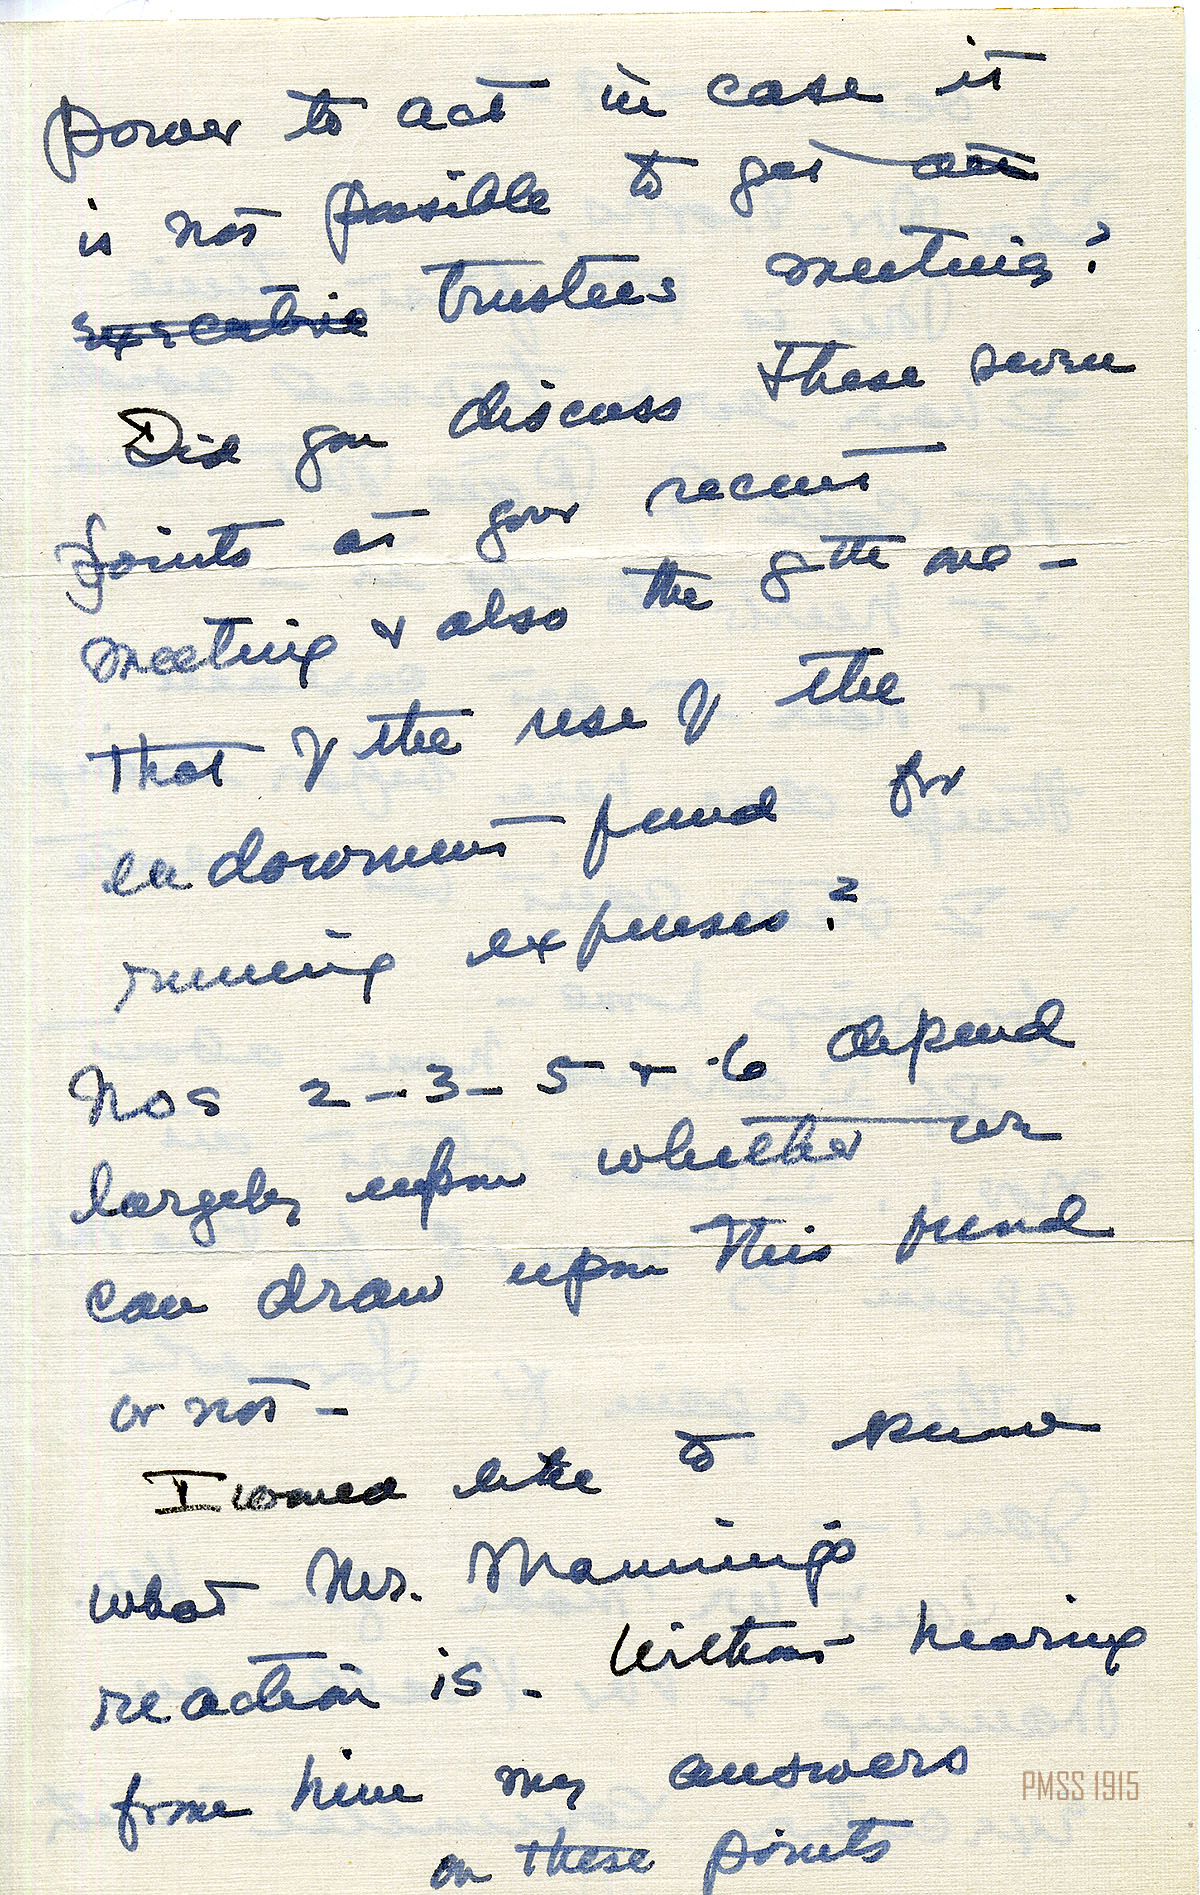 power to act in case it
is not possible to get an
executive trustees meeting?
Did you discuss these seven
points at your recent
meeting & also the 8th one -
that of the use of the
endowment fund for
running expenses?
Nos 2 - 3 - 5 & 6 depend
largely upon whether we
can draw upon this fund
or not -
I would like to know
what Mr. Manning's
reaction is - Without hearing
from him my answers
on these points
PMSS 1915